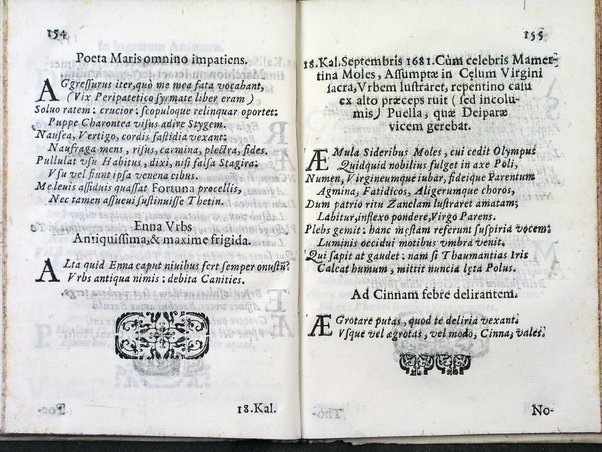 154
Poeta Maris omnino impatiens.
AGgressurus iter, quò me mea fata vocabant,
(Vix Peripatetico syrmate liber eram)
Soluo ratem: cructor: scopuloque relinquar oportet:
Puppe Charontea visus adire Stygem.
Nausea, Vertigo, cordis fastidia vexant:
Naufraga mens, risus, carmina, plectra, fides.
Pullulat vsu Habitus, dixi, nisi falsa Stagira:
Vsu vel fiunt ipsa venena cibus.
Me leuis assiduis quassat Fortuna procellis,
Nec tamen assueui sustinuisse Thetin.
Enna Vrbs
Antiquissima, & maxime frigida.
ALta quid Enna caput niuibus fert semper onustū?
Vrbs antiqua nimis: debita Canities.
18. Kal.
155
18. Kal. Septembris 1681. Cùm celebris Mamer-
tina Moles, Assumptæ in Cęlum Virgini
sacra, Vrbem lustraret, repentino casu
ex alto præceps ruit (sed incolu-
mis) Puella, quæ Deiparæ
vicem gerebat.
ÆMula Sideribus Moles, cui cedit Olympus
Quidquid nobilius fulget in axe Poli,
Numen, Virgineumque iubar, fideique Parentum
Agmina, Fatidicos, Aligerumque choros,
Dum patrio ritu Zanclam lustraret amatam;
Labitur, inflexo pondere, Virgo Parens.
Plebs gemit: hanc mestam referunt suspiria vocem:
Luminis occidui motibus vmbra venit.
Qui sapit at gaudet: nam si Thaumantias Iris
Calcat humum, mittit nuncia lęta Polus.
Ad Cinnam febre delirantem.
ÆGrotare putas, quod te deliria vexant:
Vsque vel ægrotas, vel modo, Cinna, vales.
No-